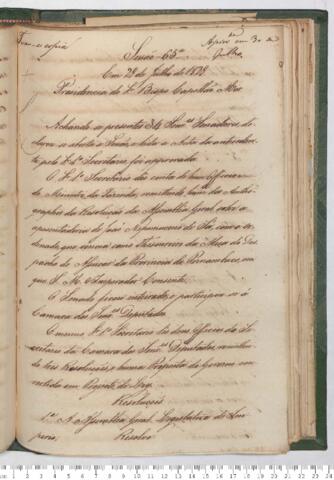 Sessão 65ª
Em 28 de Julho de 1828
Presidencia do Sr Bispo Capellão Mór
Achando-se presentes 34 Senres Senadores de-
clarou-se aberta a Sessão, e lida a Acta da antecedente
pelo Sr 1º Secretario foi approvada.
O Sr 1º Secretario deu conta de hum Officio
do Ministro da Fazenda, remettendo hum dos Auto-
graphos da Resolução da Assembléa Geral sobre a
aposentadoria de João Nepumuceno de Sá, com o or-
denado que vencia como Thesoureiro da Meza do Des-
pacho do Algodão da Provincia de Pernambuco, em
que S. M. o Imperador Consente.
O Senado ficou inteirado, e participou-se á
Camara dos Senres Deputados.
O mesmo Sr 1º Secretario leu dous Officios do Se-
cretario da Camara dos Senres Deputados, remetten-
do tres Resoluções, e huma Proposta do Governo con-
vertida em Projecto de Ley.
Resoluções
1ª A Assembléa Geral Legislativa do Im-
perio Resolve